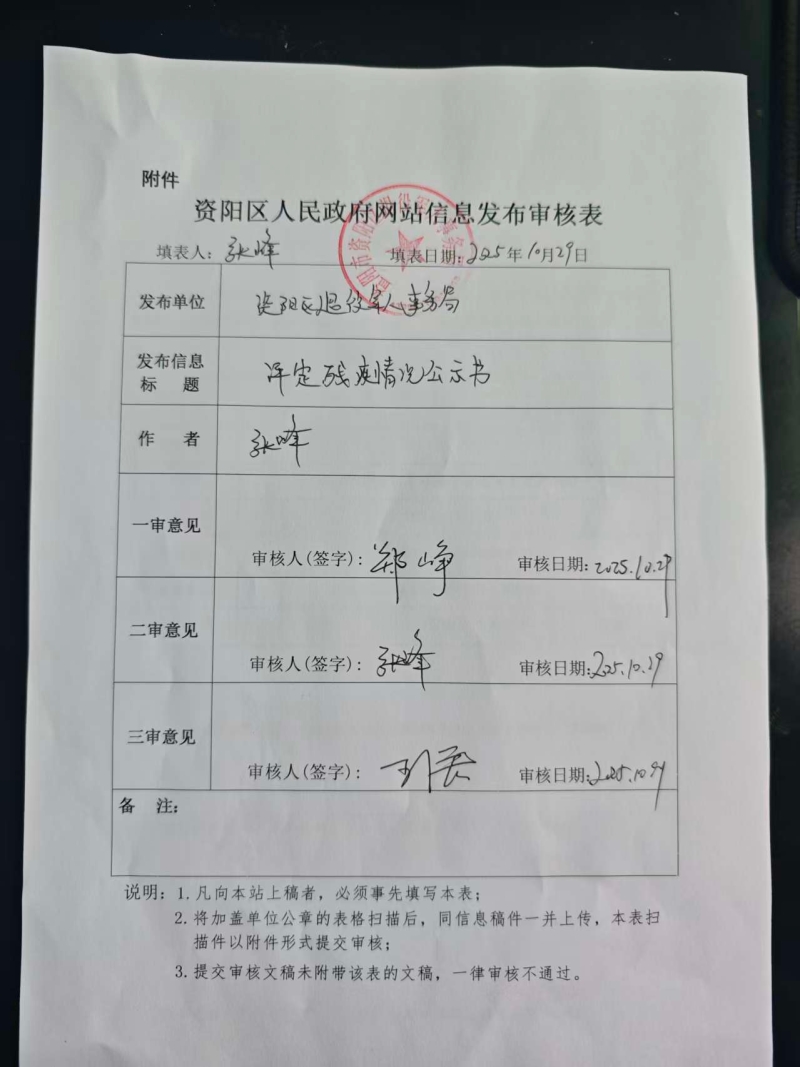 附件
资阳区人民政府网站信息发布审核表
填表人：张峰 填表日期：2025年10月29日
发布单位 资阳区退役军人事务局
发布信息标 题 评定残疾情况公示书
作 者 张峰
一审意见 审核人(签字)：郑峥 审核日期：2025.10.29
二审意见 审核人(签字)：张峰 审核日期：2025.10.29
三审意见 审核人(签字)： 审核日期：2025.10.29
备 注：
说明：1.凡向本站上稿者，必须事先填写本表；
2.将加盖单位公章的表格扫描后，同信息稿件一并上传，本表扫
描件以附件形式提交审核；
3.提交审核文稿未附带该表的文稿，一律审核不通过。